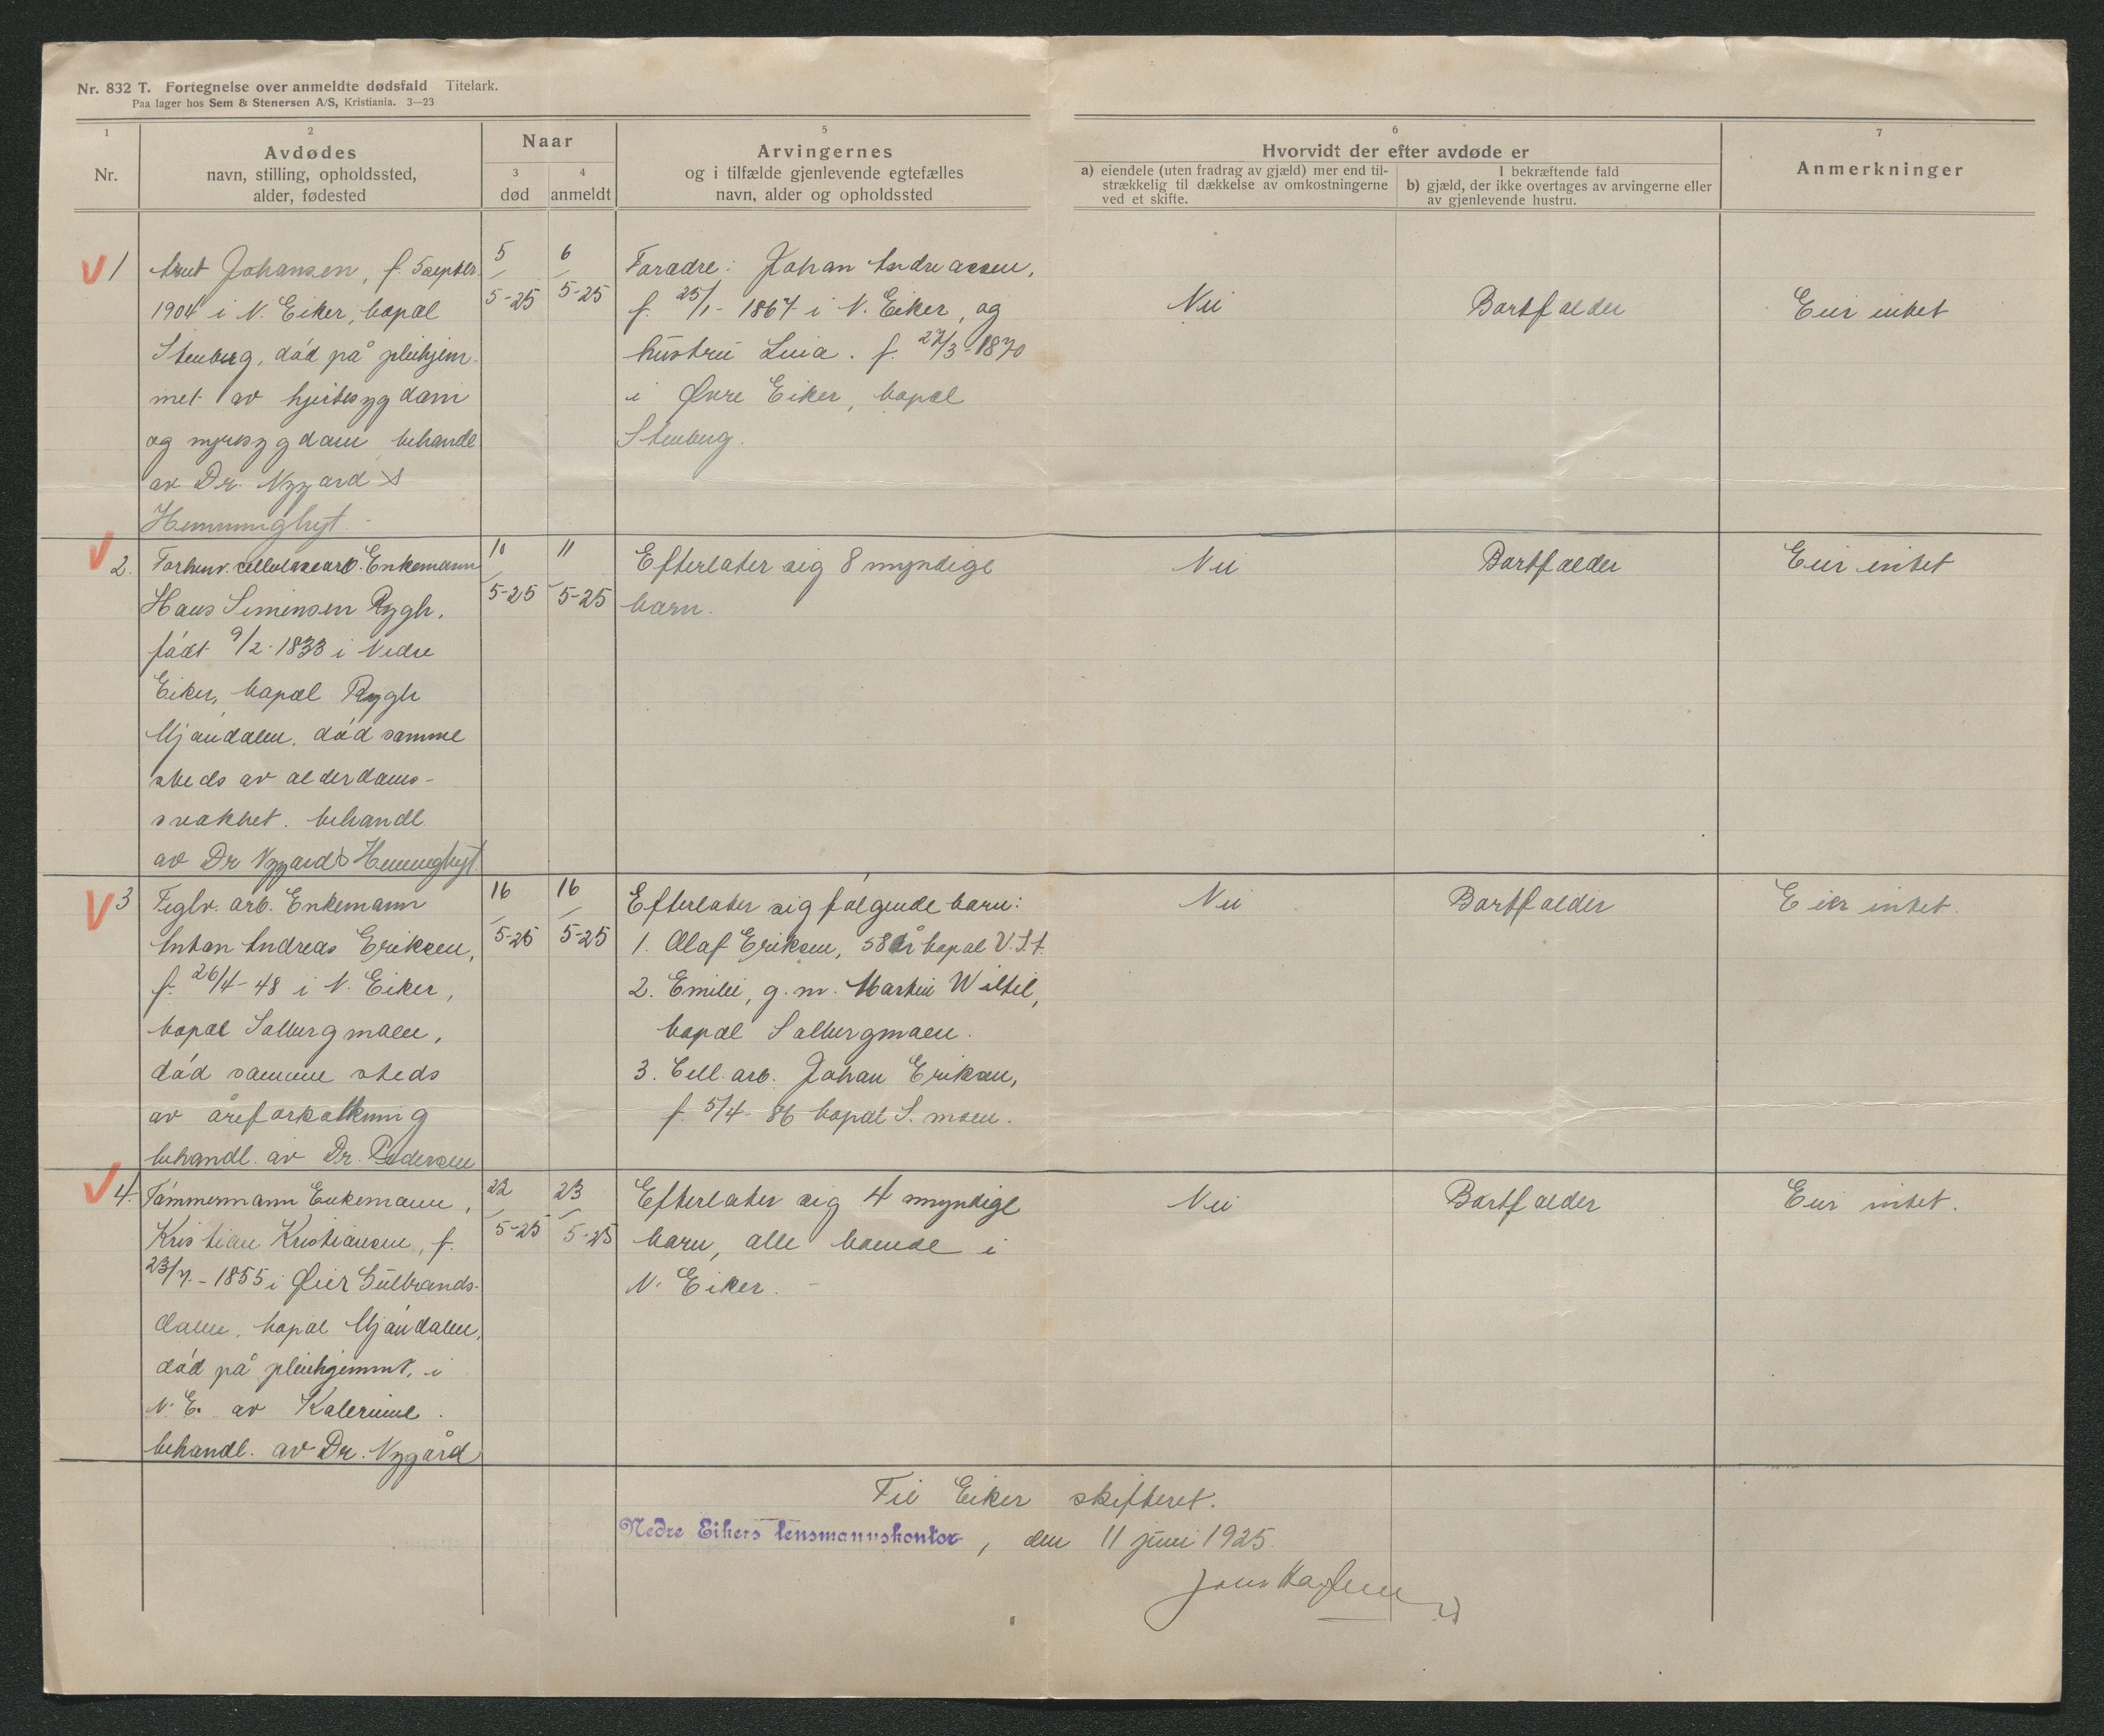 Nr. 832 T. Fortegnelse over anmeldte dødsfald Titelark.
Paa lager hos Sem & Stenersen A/S, Kristiania. 3—23
1
Nr.
2
Avdødes
navn, stilling, opholdssted,
alder, fødested
Naar
3
død
4
anmeldt
5
Arvingernes
og i tilfælde gjenlevende egtefælles
navn, alder og opholdssted
6
Hvorvidt der efter avdøde er
a) eiendele (uten fradrag av gjæld) mer end til-
strækkelig til dækkelse av omkostningerne
ved et skifte.
I bekræftende fald
b) gjæld, der ikke overtages av arvingerne eller
av gjenlevende hustru.
7
Anmerkninger
1
Johansen, f. 5 septbr.
1904 i N. Eiker, bopæl
Stenberg, død på pleiehjem
met av hjertesygdom
og nyresygdom behandl
av Dr. Nygård
5
5-25
6
5-25
Forædre: Johan Andreassen,
f. 25/1- 1867 i N. Eiker, og
hustru Lina. f. 27/3-1870
i Øvre Eiker, bopæl
Stenberg.
Nei
Bortfalder
Eier intet
2.
Forhenv. cellulosearb. Enkemann
Hans Simensen Rygh,
født 9/2-1833 i Nedre
Eiker, bopæl Rygh
Mjøndalen, død samme
steds av alderdoms-
svakhet. behandl.
av Dr Nygård
10
5-25
11
5-25
Efterlater sig 8 myndige
barn.
Nei
Bortfalder
Eier intet
3
Teglv. arb. Enkemann
Anton Andreas Eriksen,
f. 26/4-48 i N. Eiker,
bopæl Solbergmoen,
død samme steds
av åreforkalkning
behandl. av Dr. Pedersen
16
5-25
16
5-25
Efterlater sig følgende barn:
1. Olaf Eriksen, 58 år bopæl V.S.t.
2. Emilie, g. m. Martin
bopæl Solbergmoen.
3. Cell. arb. Johan Eriksen,
f. 5/4- 86 bopæl S. moen.
Nei
Bortfalder
Eier intet.
4.
Tømmermann Enkemann,
Kristian Kristiansen, f.
23/7.-1855 i Øier Gulbrands-
dalen, bopæl Mjøndalen,
død på pleiehjemmet, i
N. E. av
behandl. av Dr. Nygård
22
5-25
23
5-25
Efterlater sig 4 myndige
barn, alle boende i
N. Eiker. -
Nei
Bortfalder
Eier intet.
Til Eiker skifteret.
Nedre Eikers lensmannskontor, den 11 juni 1925.